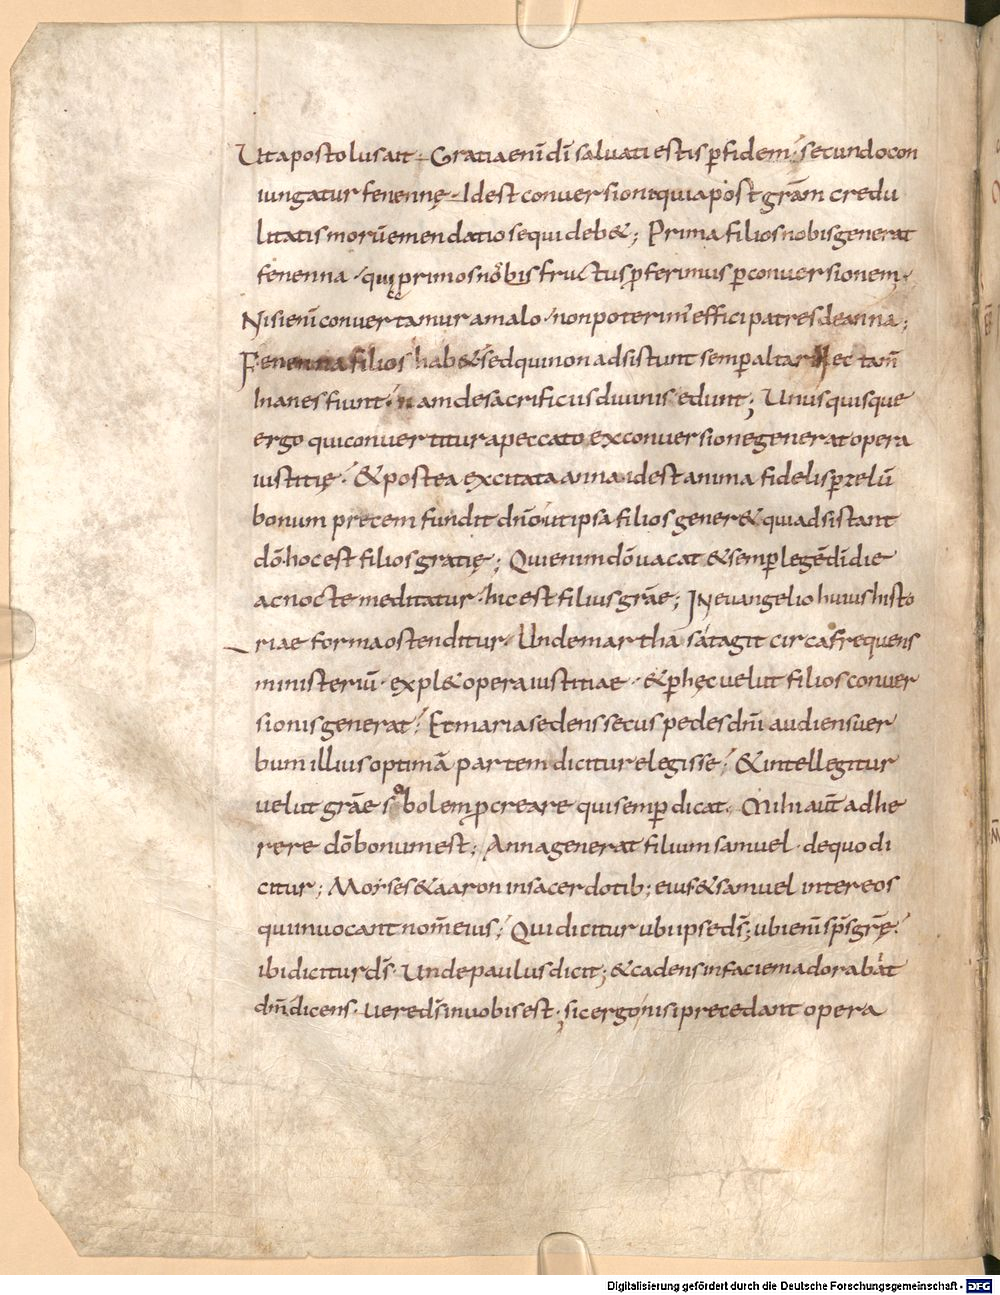 Ut apostolus ait · Gratia enī dī salvati estis ꝑ fidem · secundo con
iungatur fenennę · Id est conversioni quia post grām credu
litatis morū emendatio sequi deb&; Prima filios nobis generat
fenenna · quię primos nobis fructus ꝑferimus ꝑ conversionem ·
Nisi enī convertamur a malo · non poterimꝰ effici patres de anna;
Fenenna filios hab& sed qui non adsistunt semꝑ altari Nec tam̄
Inanes fiunt · nam de sacrificiis divinis edunt; Unusquisque
ergo qui convertitur a peccato ex conversione generat opera
iustitię · & postea excitata anna id est anima fidelis ꝑ zelū
bonum precem fundit dn̄o ut ipsa filios gener& qui adsistant
dō · hoc est filios gratię; Qui enim dō vacat & semꝑ legē dī die
ac nocte meditatur · hic est filius grāe; IN evangelio huius histo
riae forma ostenditur · Unde martha satagit circa frequens
ministeriū · expl& opera iustitiae · & ꝑ hęc velut filios conver
sionis generat · Et maria sedens secus pedes dn̄i audiens ver
bum illius optimā partem dicitur elegisse · & intellegitur
velut grāe sobolem ꝓcreare qui semꝑ dicat · Mihi aut̄ adhe
rere dō bonum est; Anna generat filium samuel · de quo di
citur; Moyses & aaron in sacerdotib; eius & samuel inter eos
qui invocant nom̄ eius; Qui dicitur ubi ipse ds̄; ubi enī sp̄s grę̄
ibi dicitur ds̄ · Unde paulus dicit; & cadens in faciem adorabat
dn̄m dicens · vere ds̄ in vobis est; sic ergo nisi precedant opera
Digitalisierung gefördert durch die Deutsche Forschungsgemeinschaft - DFG